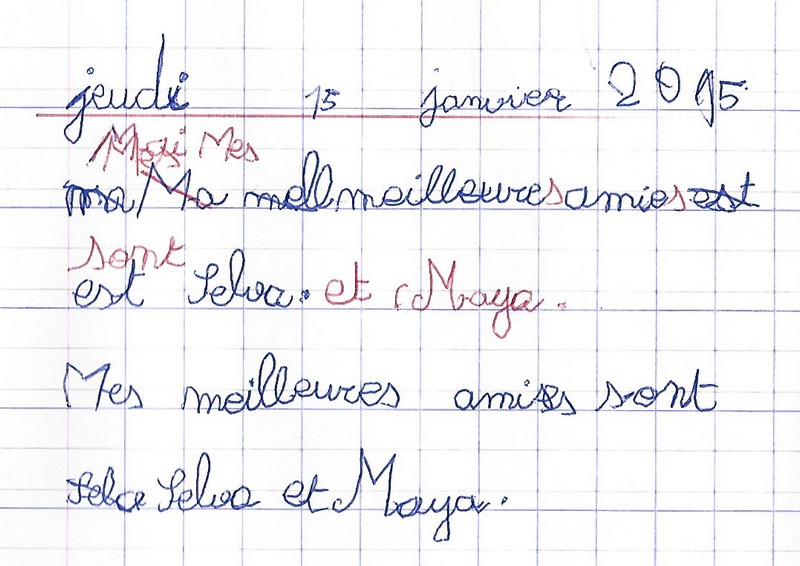 jeudi 15 janvier 2015
Mes
ma Ma meilleures amies est
sont
est Selva. et Maya.
Mes meilleures amies sont
Selva Selva et Maya.